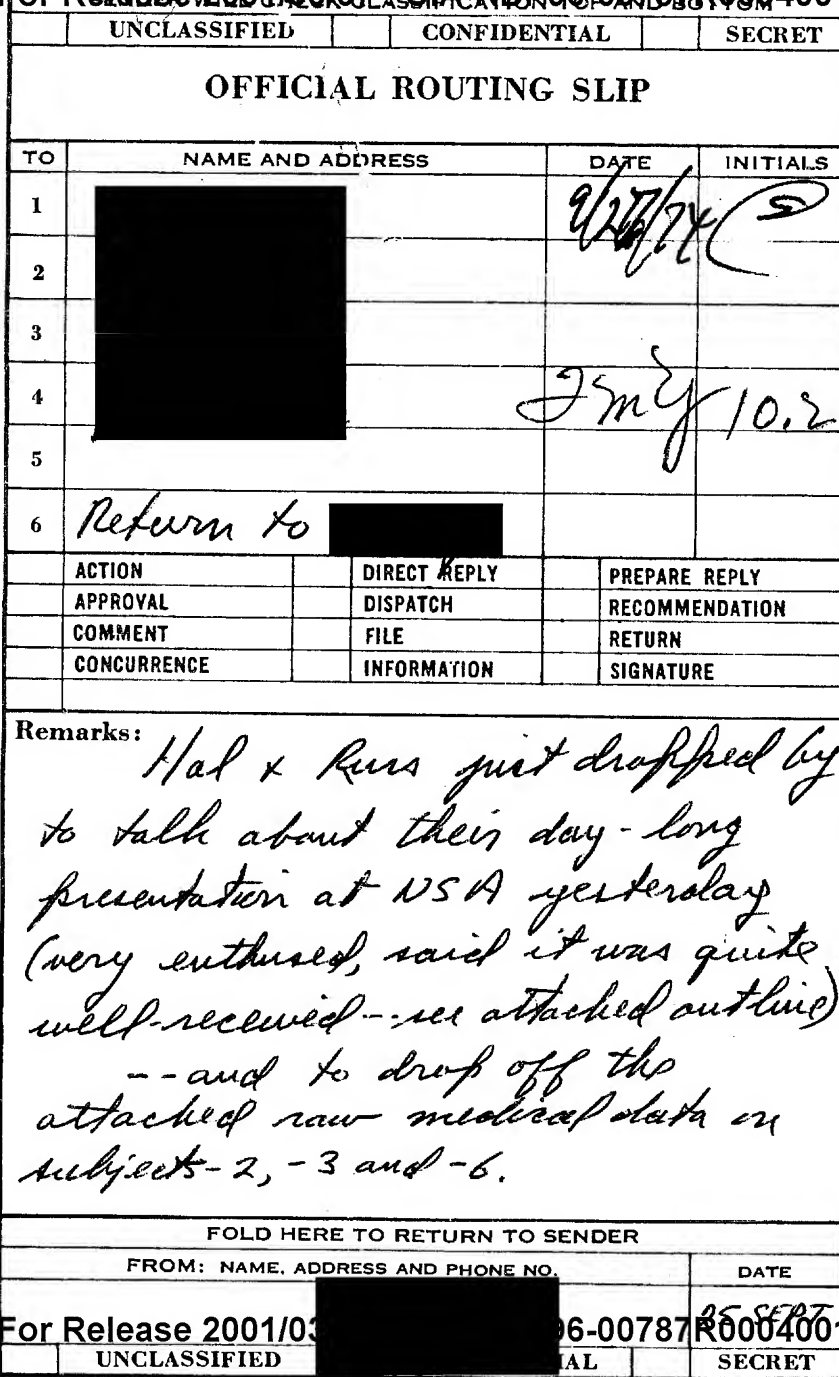 UNCLASSIFIED CONFIDENTIAL SECRET
OFFICIAL ROUTING SLIP
TO NAME AND ADDRESS DATE INITIALS
1
2
3
4 10.2
5
6 Return to
ACTION DIRECT REPLY PREPARE REPLY
APPROVAL DISPATCH RECOMMENDATION
COMMENT FILE RETURN
CONCURRENCE INFORMATION SIGNATURE
Remarks:
Hal & Russ just dropped by
to talk about their day-long
presentation at NSA yesterday
(very enthused, said it was quite
well-received--see attached outline)
--and to drop off the
attached raw medical data on
subjects-2, -3 and -6.
FOLD HERE TO RETURN TO SENDER
FROM: NAME, ADDRESS AND PHONE NO. DATE
25 SEPT
For Release 2001/03 6-00787R0004001
UNCLASSIFIED IAL SECRET